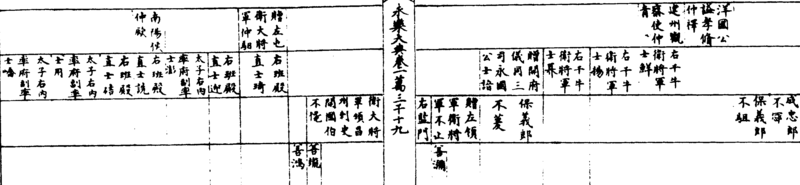 洋國公
謚孝脩
仲㮙
建州觀
察使仲
青
右千牛
衛將軍
士鮮
右千牛
衛將軍
士䅵
右千牛
衛將軍
士㬥
贈開府
儀同三
司永國
公士㒓
成忠郎
不𡩋
保義郎
不組
保義郎
不菱
贈左領
軍衛將
軍不止
右監門
善瀰
永樂大典卷一萬二千十九
贈左屯
衛大將
軍仲騆
南陽侯
仲歐
右班殿
直士琦
右班殿
直士迎
太子右内
率府副率
士澎
右班殿
直士說
右班殿
直士碏
太子右内
率府副率
士用
太子右内
率府副率
士嶹
衛大將
軍領昌
州刺史
開國伯
不㦃
善瓏
善鴻